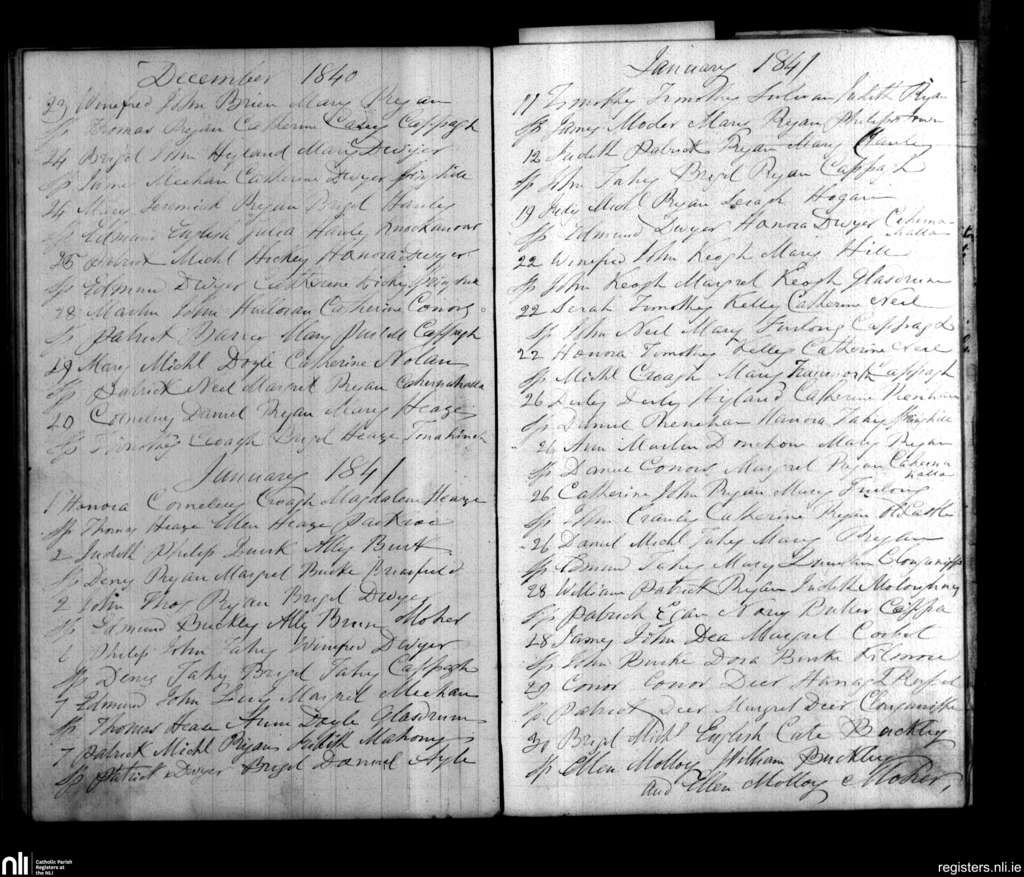 December 1840
23 Winefred John Brien Mary Ryan
Sp Thomas Ryan Catherine Casey Cappagh
24 Brigd John Hyland Mary Dwyer
Sp James Meehan Catherine Dwyer
24 Mary Jeremiah Ryan Brigd Hanly
Sp Edmund English Julia Hanly
25 Patrick Michl Hickey Honora Dwyer
Sp Edmund Dwyer Catherine Hickey
28 Martin John Halloran Catherine Conors
Sp Patrick Barry Mary Cappagh
29 Mary Michl Doyle Catherine Nolan
Sp Patrick Neil Margret Ryan
Cornelius Daniel Ryan Mary Heage
Sp Timothy Croagh Brigd Heage
January 1841
1 Honora Cornelius Croagh Magdalene Heage
Sp Thomas Heage Ellen Heage
2 Judith Philip Ally Burk
Sp Deny Ryan Margret Burke
2 John Thos Ryan Brigd Dwyer
Sp Edmund Buckley Ally Brien Moher
6 Philip John Fahy Winefred Dwyer
Sp Deny Fahy Brigd Fahy Cappagh
7 Edmund John Margret Meehan
Sp Thomas Heage Anne Doyle Glasdrum
7 Patrick Michl Ryan Judith Mahony
Sp Patrick Dwyer Brigd Daniel Ayle
January 1841
11 Timothy Timothy Sulivan Judith Ryan
Sp James Moder Mary Ryan Philipstown
12 Judith Patrick Ryan Mary Hanley
Sp John Fahy Brigd Ryan Cappagh
19 Judy Michl Ryan Hogan
Sp Edmund Dwyer Honora Dwyer
22 Winefred John Keogh Mary Hill
Sp John Keogh Margret Keogh Glasdrum
22 Sarah Timothy Kelly Catherine Neil
Sp John Neil Mary Furlong Cappagh
22 Honora Timothy Kelly Catherine Neil
Sp Michl Croagh Mary Cappagh
26 Derby Derby Hyland Catherine
Sp Daniel Honora Fahy
26 Ann Martin Mary Ryan
Sp Daniel Conors Margret Ryan
26 Catherine John Ryan Mary Furlong
Sp John Cranly Catherine Ryan Old Castle
26 Daniel Michl Fahy Mary Ryan
Sp Edmund Fahy Mary
28 William Patrick Ryan Judith Moloughny
Sp Patrick Egan Nany Butler Cappa
28 James John Dea Margret Corbet
Sp John Burke Dora Burke Kilmore
29 Conor Conor Deer
Sp Patrick Deer Margret Deer
31 Brigd Michl English Cate Buckley
Sp Ellen Molloy William Buckley
and Ellen Molloy Moher
nli
Catholic Parish
Registers at
the NLI
registers.nli.ie